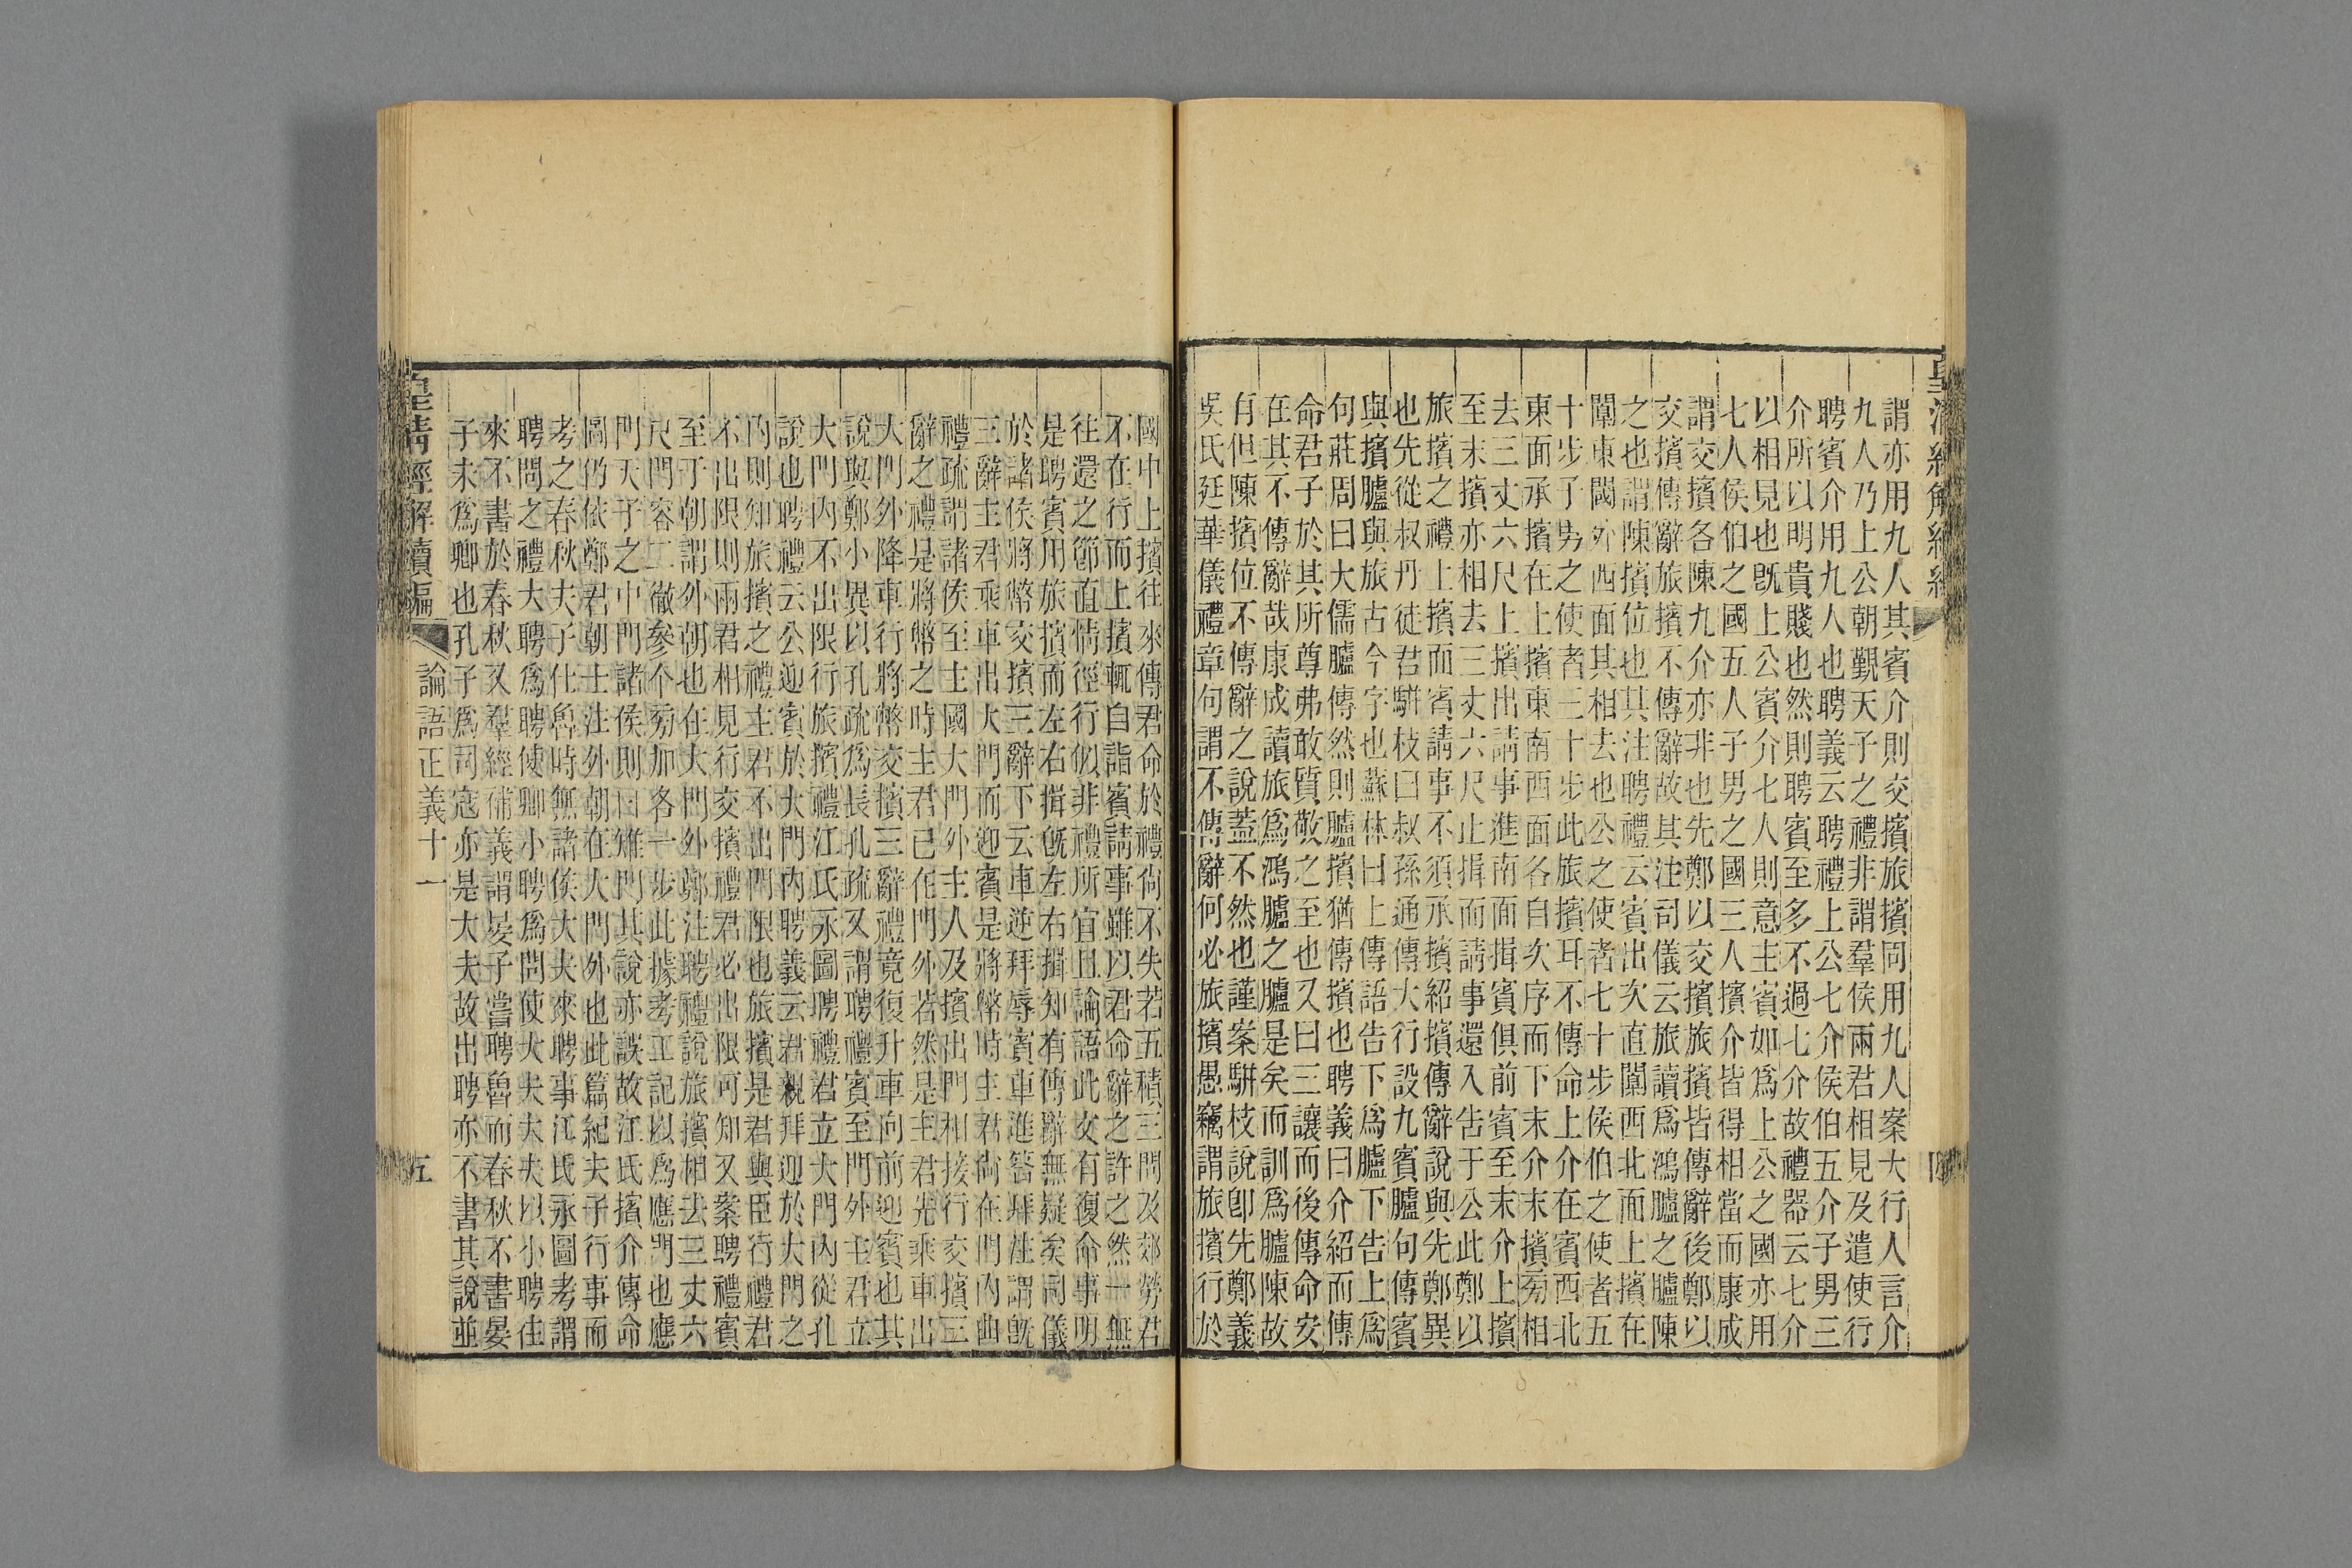 謂亦用九人其賓介則交擯旅擯同用九人案大行人言介
九人乃上公朝覲天子之禮非謂羣侯兩君相見及遣使行
聘賓介用九人也聘義云聘禮上公七介侯伯五介子男三
介所以明貴賤也然則聘賓至多不過七介故禮器云七介
以相見也旣上公賓介七人則意主賓如爲上公之國亦用
七人侯伯之國五人子男之國三人擯介皆得相當而康成
謂交擯各陳九介亦非也先鄭以交擯旅擯皆傳辭後鄭以
交擯傳辭旅擯不傳辭故其注司儀云旅讀爲鴻臚之臚陳
之也謂陳擯位也其注聘禮云賓出次直闑西北面上擯在
闑東閾外西面其相去也公之使者七十步侯伯之使者五
十步子男之使者三十步此旅擯耳不傳命上介在賓西北
東面承擯在上擯東南西面各自次序而下末介末擯旁相
去三丈六尺上擯出請事進南面揖賓俱前賓至末介上擯
至末擯亦相去三丈六尺止揖而請事還入告于公此鄭以
旅擯之禮上擯而賓請事不須承擯紹擯傳辭說與先鄭異
也先從叔丹徒君駢枝曰叔孫通傳大行設九賓臚句傳賓
與擯臚與旅古今字也蘇林曰上傳語告下爲臚下告上爲
句莊周曰大儒臚傳然則臚擯猶傳擯也聘義曰介紹而傳
命君子於其所尊弗敢質敬之至也又曰三讓而後傳命安
在其不傳辭哉康成讀旅爲鴻臚之臚是矣而訓爲臚陳故
有但陳擯位不傳辭之說蓋不然也謹案駢枝說卽先鄭義
吳氏廷華儀禮章句謂不傳辭何必旅擯愚竊謂旅擯行於
國中上擯往來傳君命於禮尙不失若五積三問及郊勞君
不在行而上擯輒自詣賓請事雖以君命辭之許之然一無
往還之節直情徑行似非禮所宜且論語此文有復命事明
是聘賓用旅擯而左右揖旣左右揖知有傳辭無疑矣司儀
於諸侯將幣交擯三辭下云車逆拜辱賓車進答拜注謂旣
三辭主君乘車出大門而迎賓是將幣時主君尙在門內曲
禮疏謂諸侯至主國大門外主人及擯出門相接行交擯三
辭之禮是將幣之時主君已在門外若然是主君先乘車出
大門外降車行將幣交擯三辭禮竟復升車向前迎賓也其
說與鄭小異以孔疏爲長孔疏又謂聘禮賓至門外主君立
大門內不出限行旅擯禮江氏永圖聘禮君立大門內從孔
說也聘禮云公迎賓於大門內聘義云君親拜迎於大門之
內則知旅擯之禮主君不出門限也旅擯是君與臣行禮君
不出限則兩君相見行交擯禮君必出限可知又案聘禮賓
至于朝謂外朝也在大門外鄭注聘禮說旅擯相去三丈六
尺門容二徹參个旁加各一步此據考工記以爲應門也應
門天子之中門諸侯則曰雉門其說亦誤故江氏擯介傳命
圖仍依鄭君朝士注外朝在大門外也此篇紀夫子行事而
考之春秋夫子仕魯時無諸侯大夫來聘事江氏永圖考謂
聘問之禮大聘爲聘使卿小聘爲問使大夫大夫以小聘往
來不書於春秋又羣經補義謂晏子嘗聘魯而春秋不書晏
子未爲卿也孔子爲司寇亦是大夫故出聘亦不書其說並
皇清經解續編
論語正義十一
五